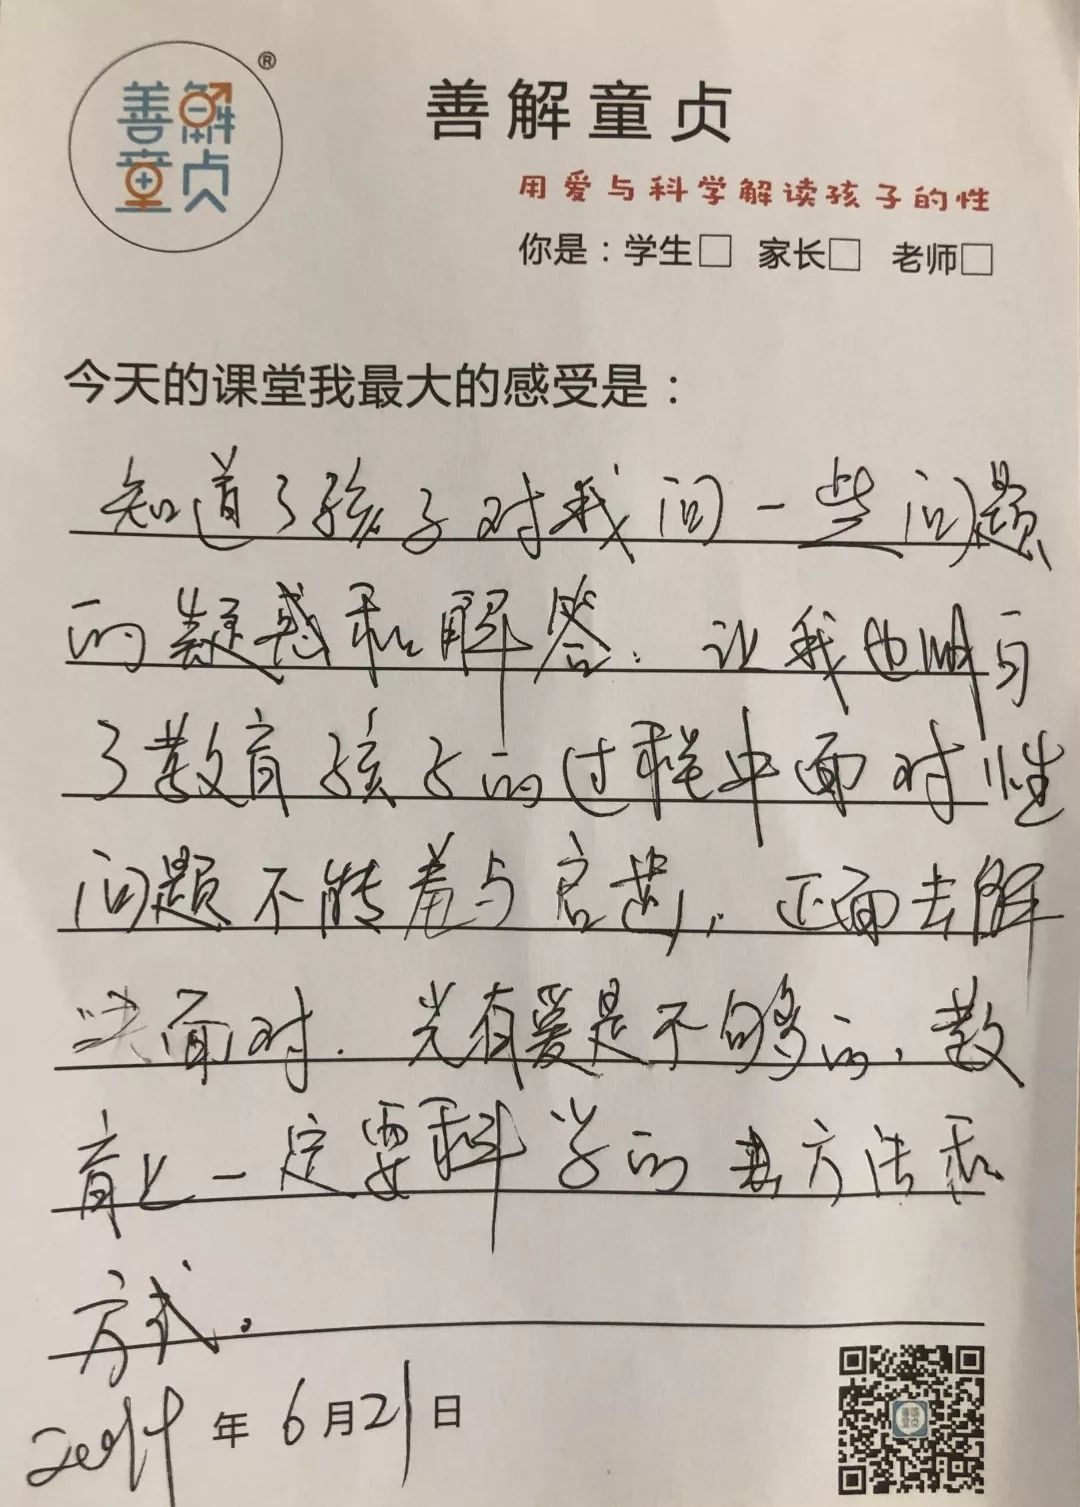 善解童贞
®
善解童贞
用爱与科学解读孩子的性
你是：学生□ 家长□ 老师□
今天的课堂我最大的感受是：
知道了孩子对我问一些问题
的疑惑和解答. 让我也明白
了教育孩子的过程中面对性
问题不能羞与启齿，正面去解
决面对. 光有爱是不够的，教
育上一定要科学的 方法和
方式。
年 6月21日